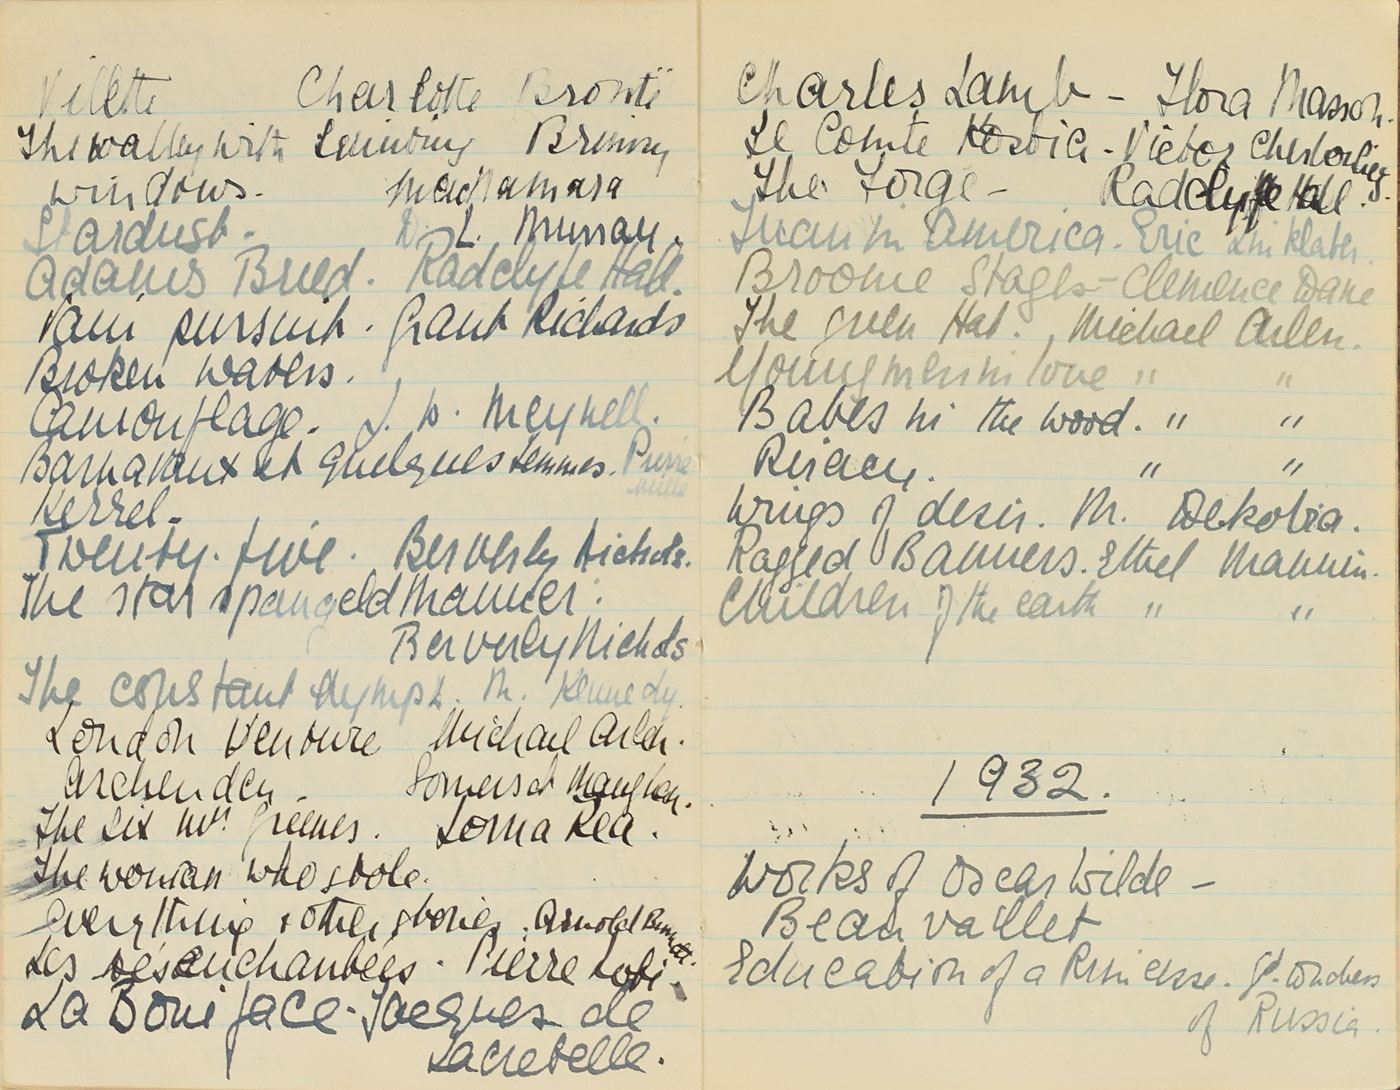 Villette Charlotte Brontë
The valley with Leaning Brinsley
windows. MacNamara
Stardust. D. L. Murray.
Adams Breed. Radclyffe Hall.
Vain pursuit. Grant Richards
Broken waters.
Camouflage. L. W. Meynell.
Barnavaux et quelques femmes. Pierre
Mille
Kerrel.
Twenty-five. Berverly Nichols.
The star spangeld Manner:
Berverly Nichols
The constant Nymph. M. Kennedy.
London Venture Michael Arlen.
Ashenden. Somerset Maugham.
The six Mrs Greenes. Lorna Rea.
The woman who stole
everything & other stories. Arnold Bennett.
Les désenchantées. Pierre Loti.
La Boniface. Jacques de
Lacretelle.
Charles Lamb - Flora Masson.
Le Comte - Victor
The Forge - Radclyffe Hall.
Juan in America. Eric Linklater.
Broome Stages - Clemence Dane
The green Hat. Michael Arlen.
Young men in love " "
Babes in the wood. " "
Piracy. " "
Wings of desir. M. Dekobra.
Ragged Banners. Ethel Mannin.
Children of the earth " "
1932.
Works of Oscar Wilde -
Beauvallet
Education of a Princesse. Gd. Duchess
of Russia.